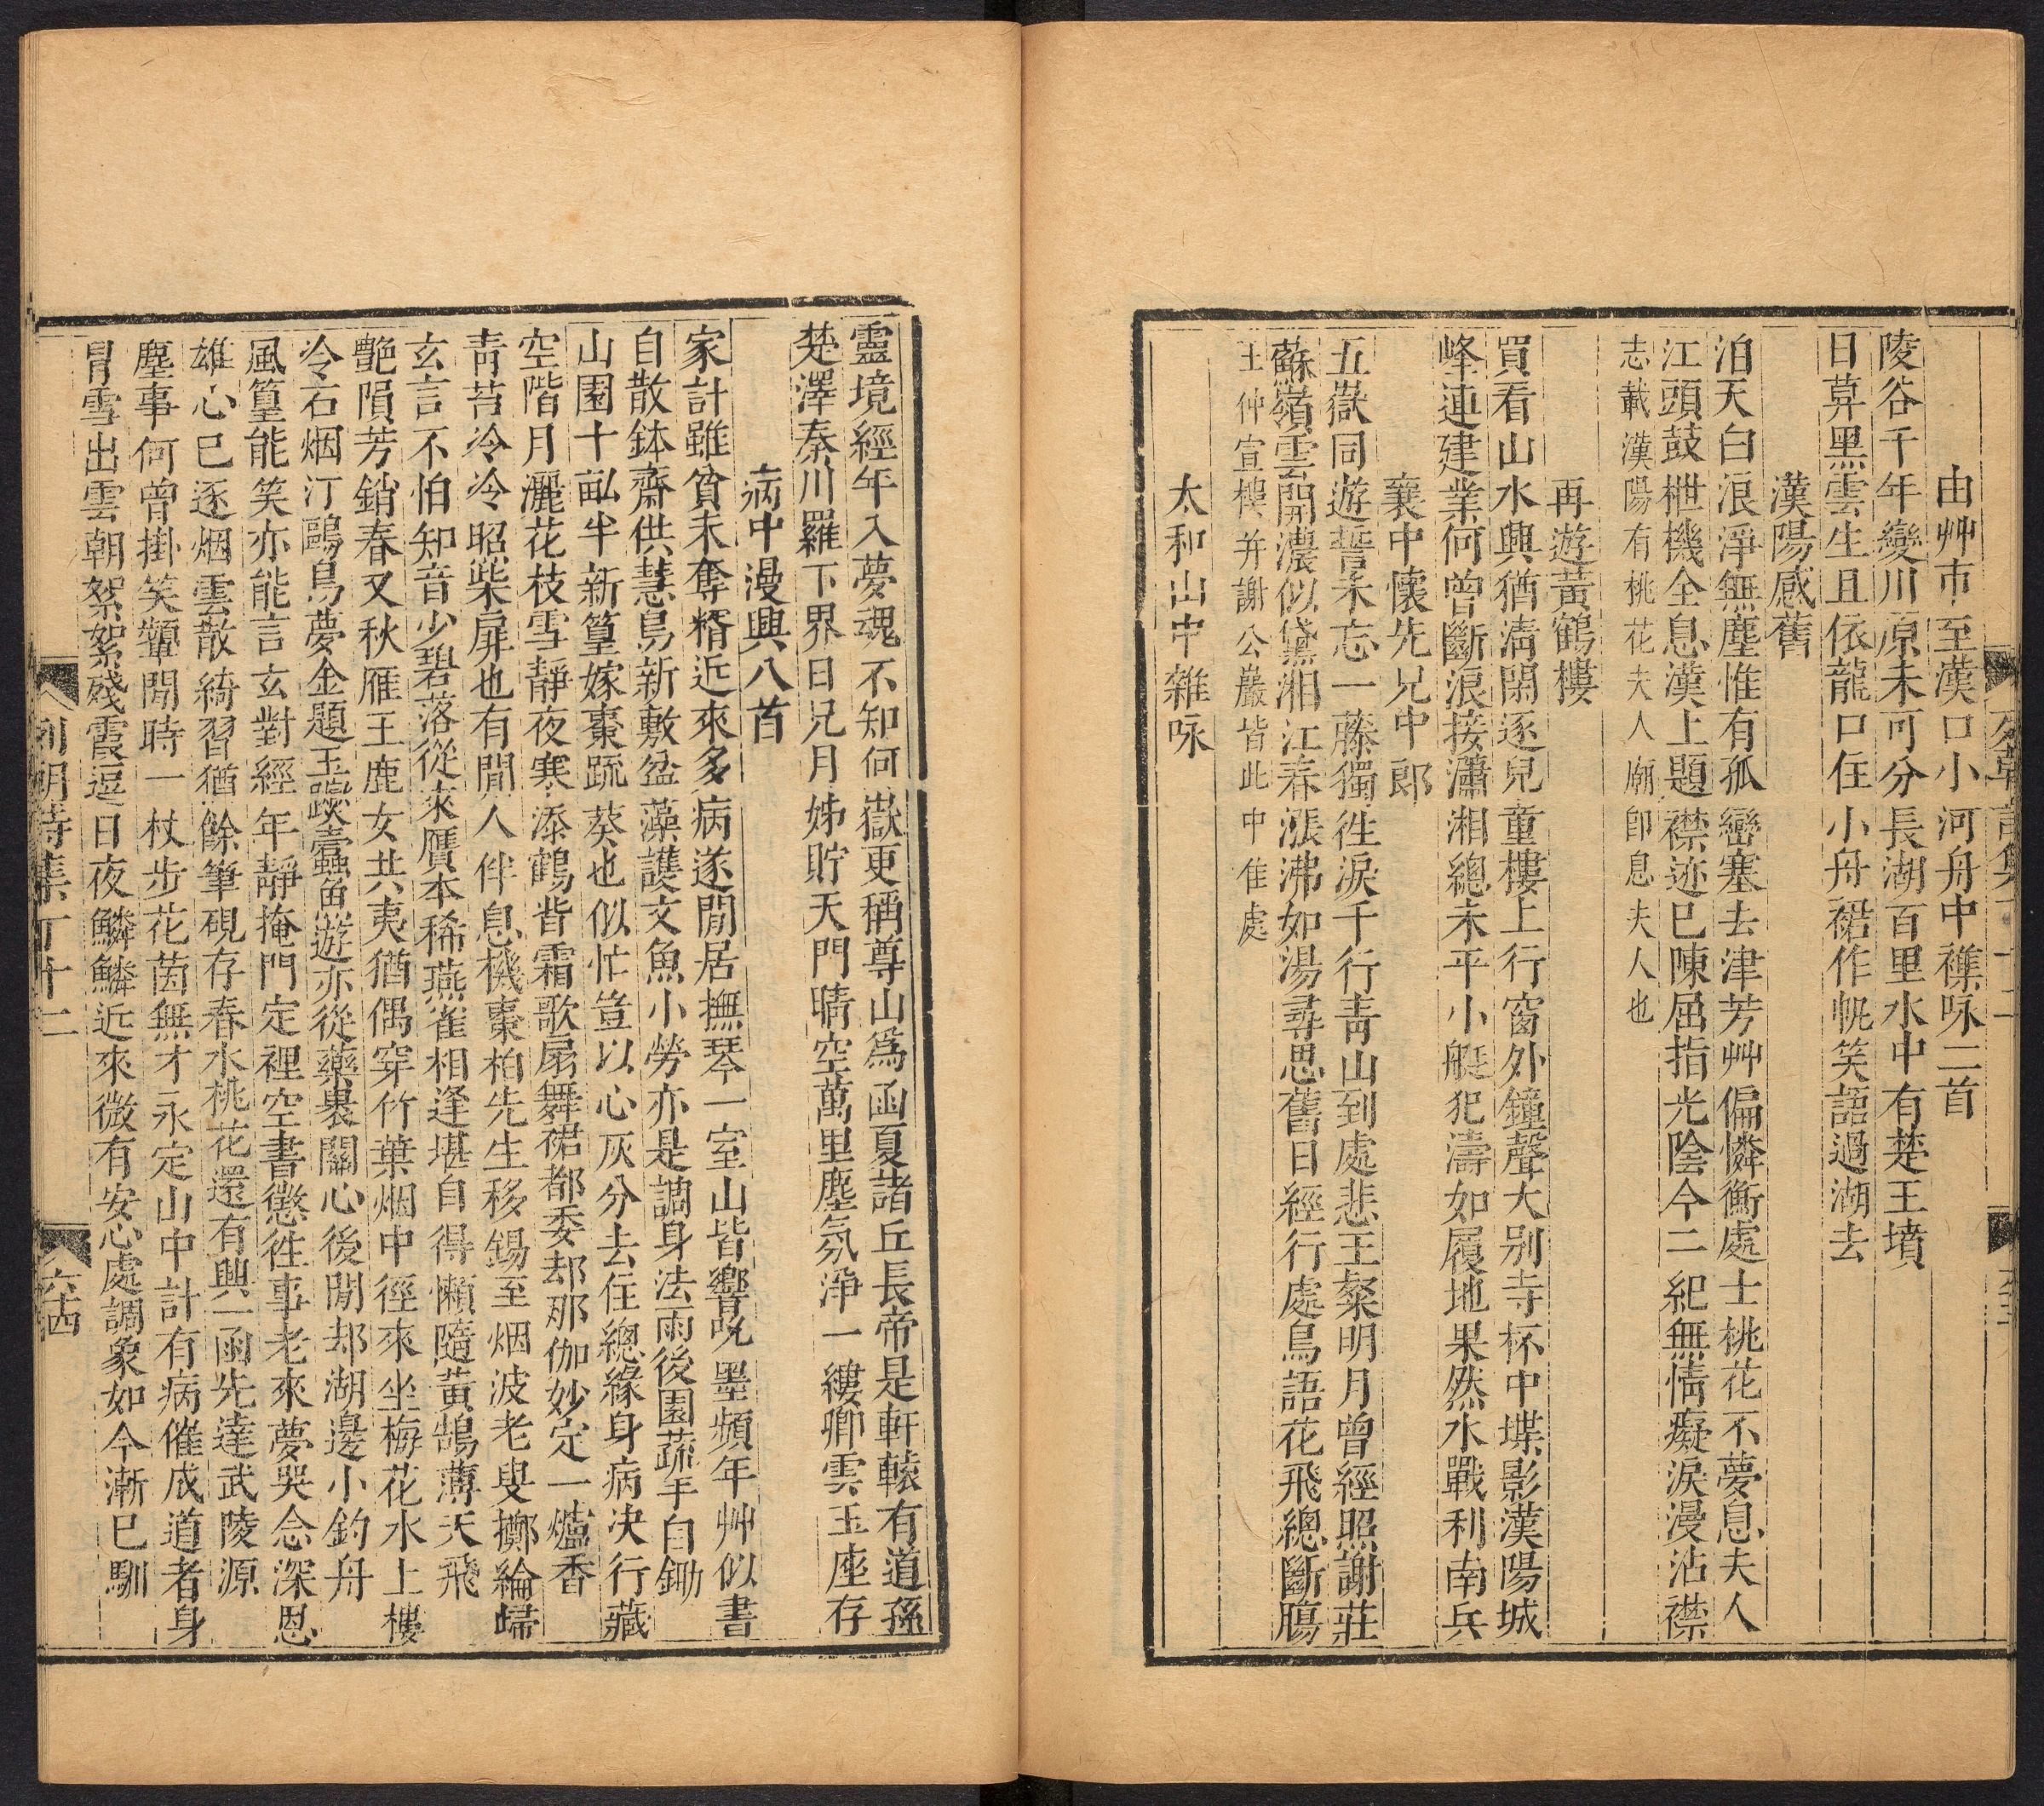 由艸市至漢口小河舟中襍咏二首
陵谷千年變川原未可分長湖百里水中有楚王墳
日莫黑雲生且依龍口住小舟裙作帆笑語過湖去
漢陽感舊
泊天白浪淨無塵惟有孤巒塞去津芳艸偏憐衡處士桃花不夢息夫人
江頭鼓枻機全息漢上題襟迹已陳屈指光陰今二紀無情癡淚漫沾襟
志載漢陽有桃花夫人廟卽息夫人也
再遊黃鶴樓
買看山水興猶淸閑逐兒童樓上行窗外鐘聲大別寺杯中堞影漢陽城
峰連建業何曾斷浪接瀟湘總未平小艇犯濤如履地果然水戰利南兵
襄中懷先兄中郎
五嶽同遊誓未忘一藤獨徃淚千行靑山到處悲王粲明月曾經照謝莊
蘇嶺雲開濃似黛湘江春漲沸如湯尋思舊日經行處鳥語花飛總斷腸
王仲宣樓并謝公巖皆此中佳處
太和山中雜咏
靈境經年入夢魂不知何嶽更稱尊山爲函夏諸丘長帝是軒轅有道孫
楚澤秦川羅下界日兄月姊貯天門晴空萬里塵氛淨一縷卿雲玉座存
病中漫興八首
家計雖貧未奪糈近來多病遂閒居撫琴一室山皆響說墨頻年艸似書
自散鉢齋供慧鳥新敷盆藻護文魚小勞亦是調身法雨後園蔬手自鋤
山園十畝半新篁嫁棗䟽葵也似忙豈以心灰分去住總緣身病决行藏
空階月灑花枝雪靜夜寒添鶴背霜歌扇舞裙都委却那伽妙定一爐香
靑苔冷冷昭柴扉也有閒人伴息機棗柏先生移錫至烟波老叟擲綸歸
玄言不怕知音少碧落從來贋本稀燕雀相逢堪自得懶隨黃鵠薄天飛
艷隕芳銷春又秋雁王鹿女共夷猶偶穿竹葉烟中徑來坐梅花水上樓
冷石烟汀鷗鳥夢金題玉躞蠹魚遊亦從藥裹關心後閒却湖邊小釣舟
風篁能笑亦能言玄對經年靜掩門定裡空書懲徃事老來夢哭念深恩
雄心已逐烟雲散綺習猶餘筆硯存春水桃花還有興一函先達武陵源
塵事何曾掛笑顰閒時一杖步花茵無才永定山中計有病催成道者身
冐雪出雲朝絮絮殘霞逗日夜鱗鱗近來微有安心處調象如今漸已馴
列朝詩集丁十二
六十四